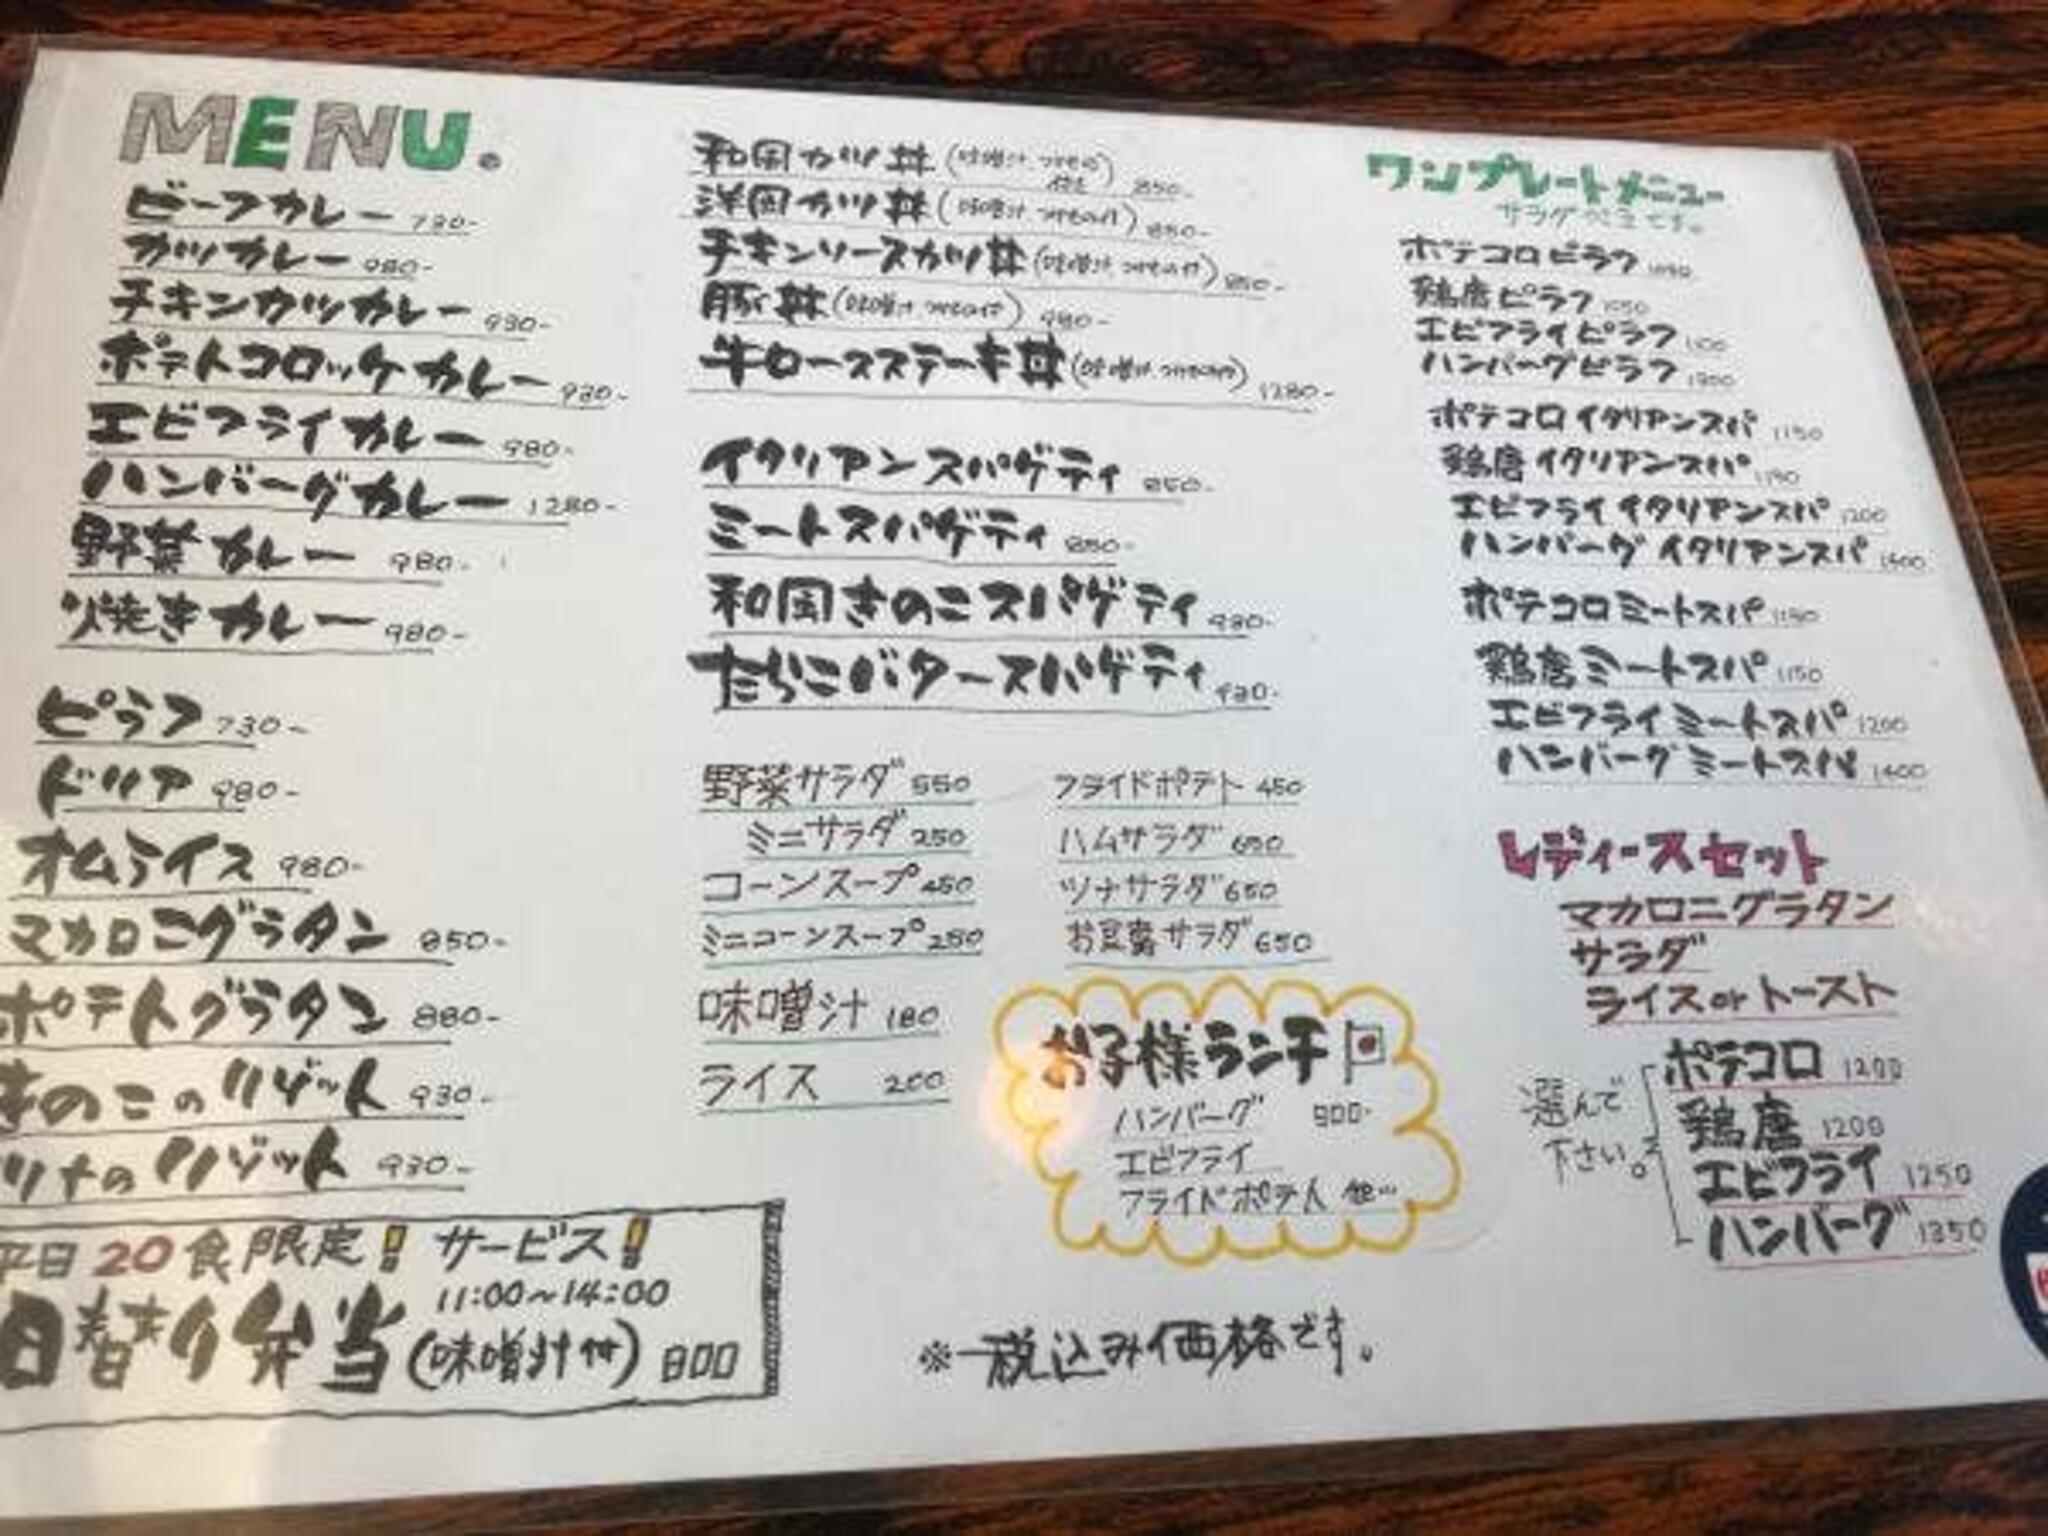 MENU.
ビーフカレー 730-
カツカレー 980-
チキンカツカレー 930-
ポテトコロッケカレー 930-
エビフライカレー 980-
ハンバーグカレー 1280-
野菜カレー 980-
焼きカレー 980-
ピラフ 730-
ドリア 980-
オムライス 980-
マカロニグラタン 850-
ポテトグラタン 880-
きのこのリゾット 930-
ツナのリゾット 930-
平日20食限定! サービス!
11:00~14:00
日替り弁当(味噌汁付) 800
和風カツ丼(味噌汁、つけもの付) 850-
洋風カツ丼(味噌汁つけもの付) 850-
チキンソースカツ丼(味噌汁、つけもの付) 850-
豚丼(味噌汁つけもの付) 980-
牛ロースステーキ丼(味噌汁、つけもの付) 1280-
イタリアンスパゲティ 850-
ミートスパゲティ 850-
和風きのこスパゲティ 930-
たらこバタースパゲティ 930-
野菜サラダ 550
ミニサラダ 250
コーンスープ 450
ミニコーンスープ 250
味噌汁 180
ライス 200
フライドポテト 450
ハムサラダ 650
ツナサラダ 650
お豆腐サラダ 650
お子様ランチ
ハンバーグ 900-
エビフライ
フライドポテト 他…
※税込み価格です。
ワンプレートメニュー
サラダ付きです。
ポテコロピラフ 1050
鶏唐ピラフ 1050
エビフライピラフ 1100
ハンバーグピラフ 1300
ポテコロイタリアンスパ 1150
鶏唐イタリアンスパ 1150
エビフライイタリアンスパ 1200
ハンバーグイタリアンスパ 1400
ポテコロミートスパ 1150
鶏唐ミートスパ 1150
エビフライミートスパ 1200
ハンバーグミートスパ 1400
レディースセット
マカロニグラタン
サラダ
ライスorトースト
選んで
下さい。
ポテコロ 1200
鶏唐 1200
エビフライ 1250
ハンバーグ 1350